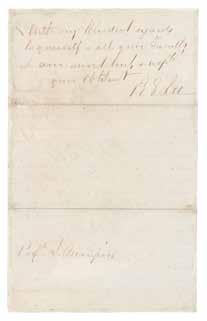 With my kindest regards
to yourself & all your Family
I am most truly & resp'y
your Obt Servt
R E Lee
Prof